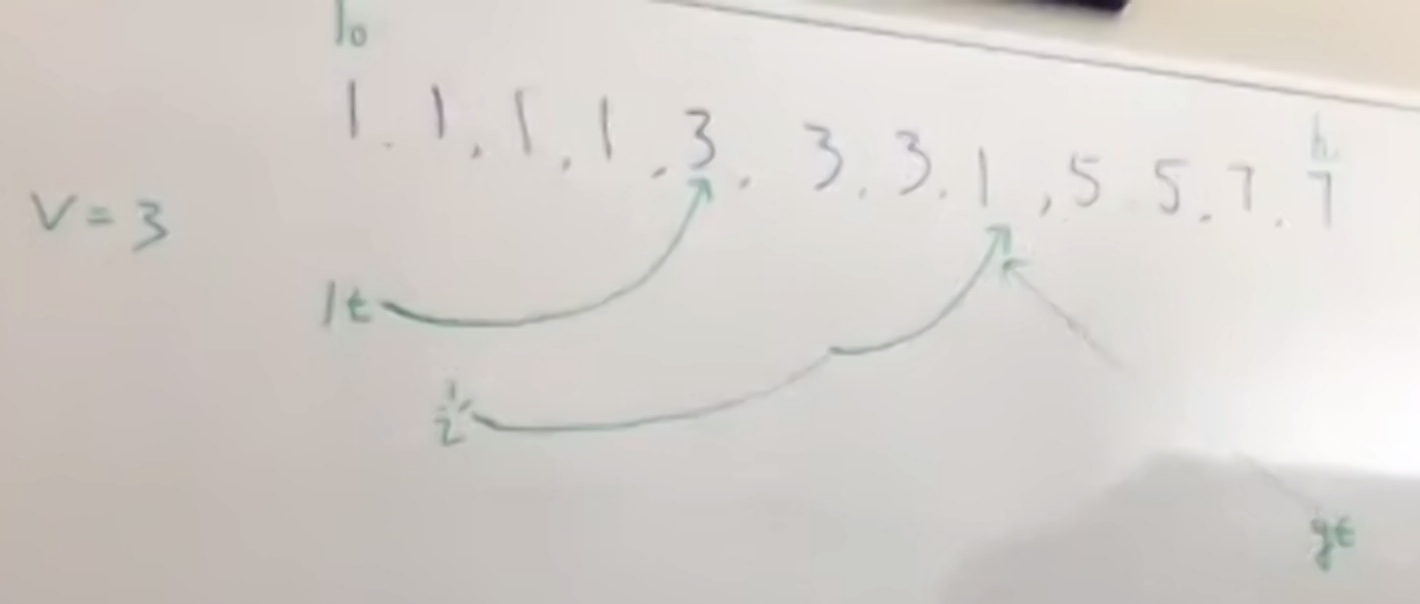 lo
h
1, 1, 1, 1, 3, 3, 3, 1, 5 5, 7, 7
V = 3
lt
i
gt